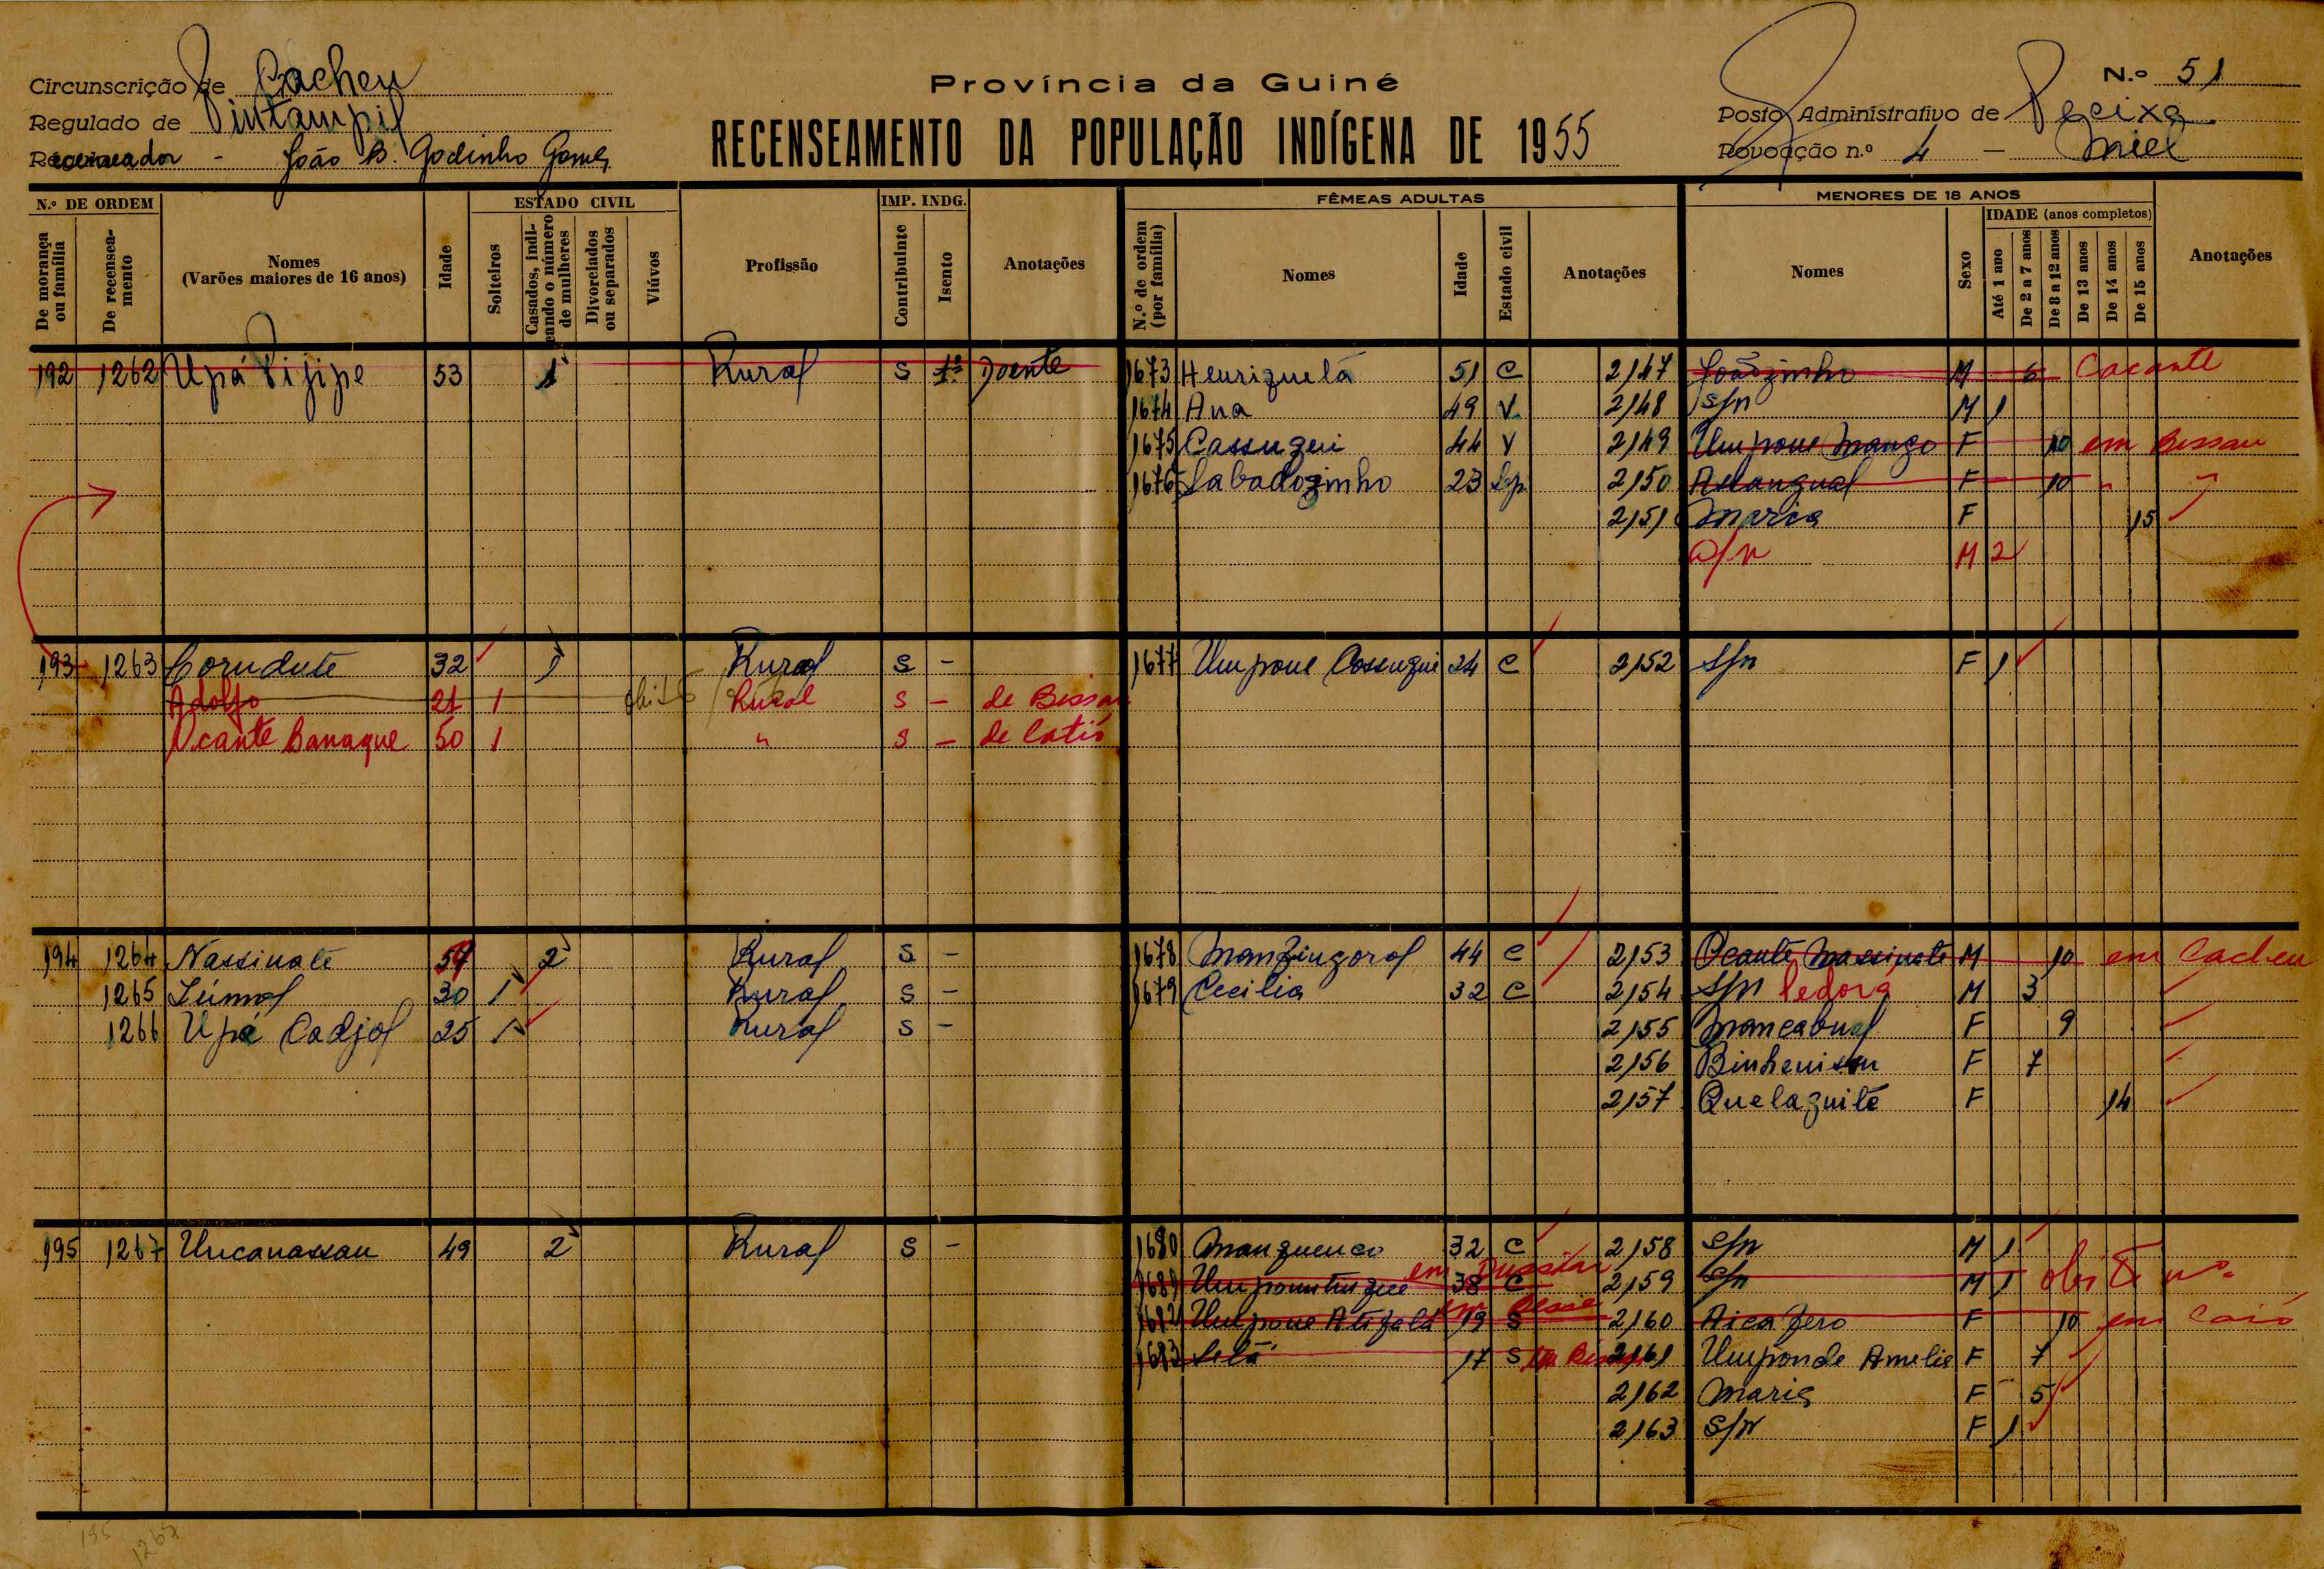 Circunscrição de Cacheu
Província da Guiné
N.º 51
Regulado de Pintampil
Posto Administrativo de Pecixe
Recenseador - João B. Godinho Gomes
RECENSEAMENTO DA POPULAÇÃO INDÍGENA DE 1955
Povoação n.º 4 - Miel
N.º DE ORDEM
De morança ou família
De recenseamento
Nomes
(Varões maiores de 16 anos)
Idade
ESTADO CIVIL
Solteiros
Casados, indicando o número de mulheres
Divorciados ou separados
Viúvos
Profissão
IMP. INDG.
Contribuinte
Isento
Anotações
FÊMEAS ADULTAS
N.º de ordem (por família)
Nomes
Idade
Estado civil
Anotações
MENORES DE 18 ANOS
Nomes
Sexo
IDADE (anos completos)
Até 1 ano
De 2 a 7 anos
De 8 a 12 anos
De 13 anos
De 14 anos
De 15 anos
Anotações
192 1262 Upá Pijipe 53 1 Rural S 1ª Doente 1673 Henriquetá 51 C 2147 Joãozinho M 6 Cacante
1674 Ana 49 V 2148 S/n M 1
1675 Cassugui 44 V 2149 Umpone Mango F 10 em Bissau
1676 Sabadozinho 23 Sep. 2150 Aslangual F 10 " "
2151 Maria F 15
S/n M 2
193 1263 Corudute 32 1 Rural S - 1677 Umpone Cossugui 24 C 2152 S/n F 1
Adolfo 21 1 obito Rural S - de Bissau
Ocante Banaque 50 1 " S - de Catió
194 1264 Nassinate 59 2 Rural S - 1678 Manzingoral 44 C 2153 Ocante Massinate M 10 em Cacheu
1265 Lúmal 30 1 Rural S - 1679 Cecilia 32 C 2154 S/n Pedora M 3
1266 Upá Cadjol 25 1 Rural S - 2155 Mancabual F 9
2156 Binhenisan F 7
2157 Quelaguite F 14
195 1267 Uncanassau 49 2 Rural S - 1680 Manguenca 32 C 2158 S/n M 1
1681 38 C em 2159 S/n M 1 obito
1682 Umpone Atifela 19 S em 2160 Aica Jero F 10 em Caió
1683 Selá 17 S em Bissau 2161 Umponde Amelia F 7
2162 Maria F 5
2163 S/n F 1
195
1267